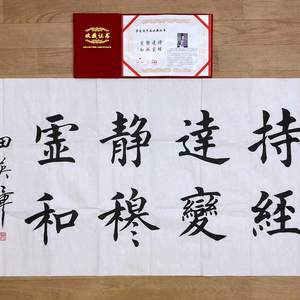 收藏证书
COLLECTION CERTIFICATE
持經
達變
静穆
虛和
田英章